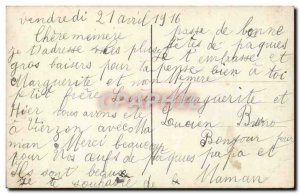 vendredi 21 avril 1916
Chère mémère
je t'adresse mes plus
gros baisers pour ta
Marguerite et mon
petit frère Louis
Hier nous avons été
à Vierzon avec Ma
man Merci beaucoup
pour nos œufs de Pâques
ils sont beaux
je te souhaite de
passe de bonne
fêtes de pâques
je t'embrasse et
pense bien à toi
Mémère
Marguerite et
Lucien
Bonjour pour
papa et
la Maman